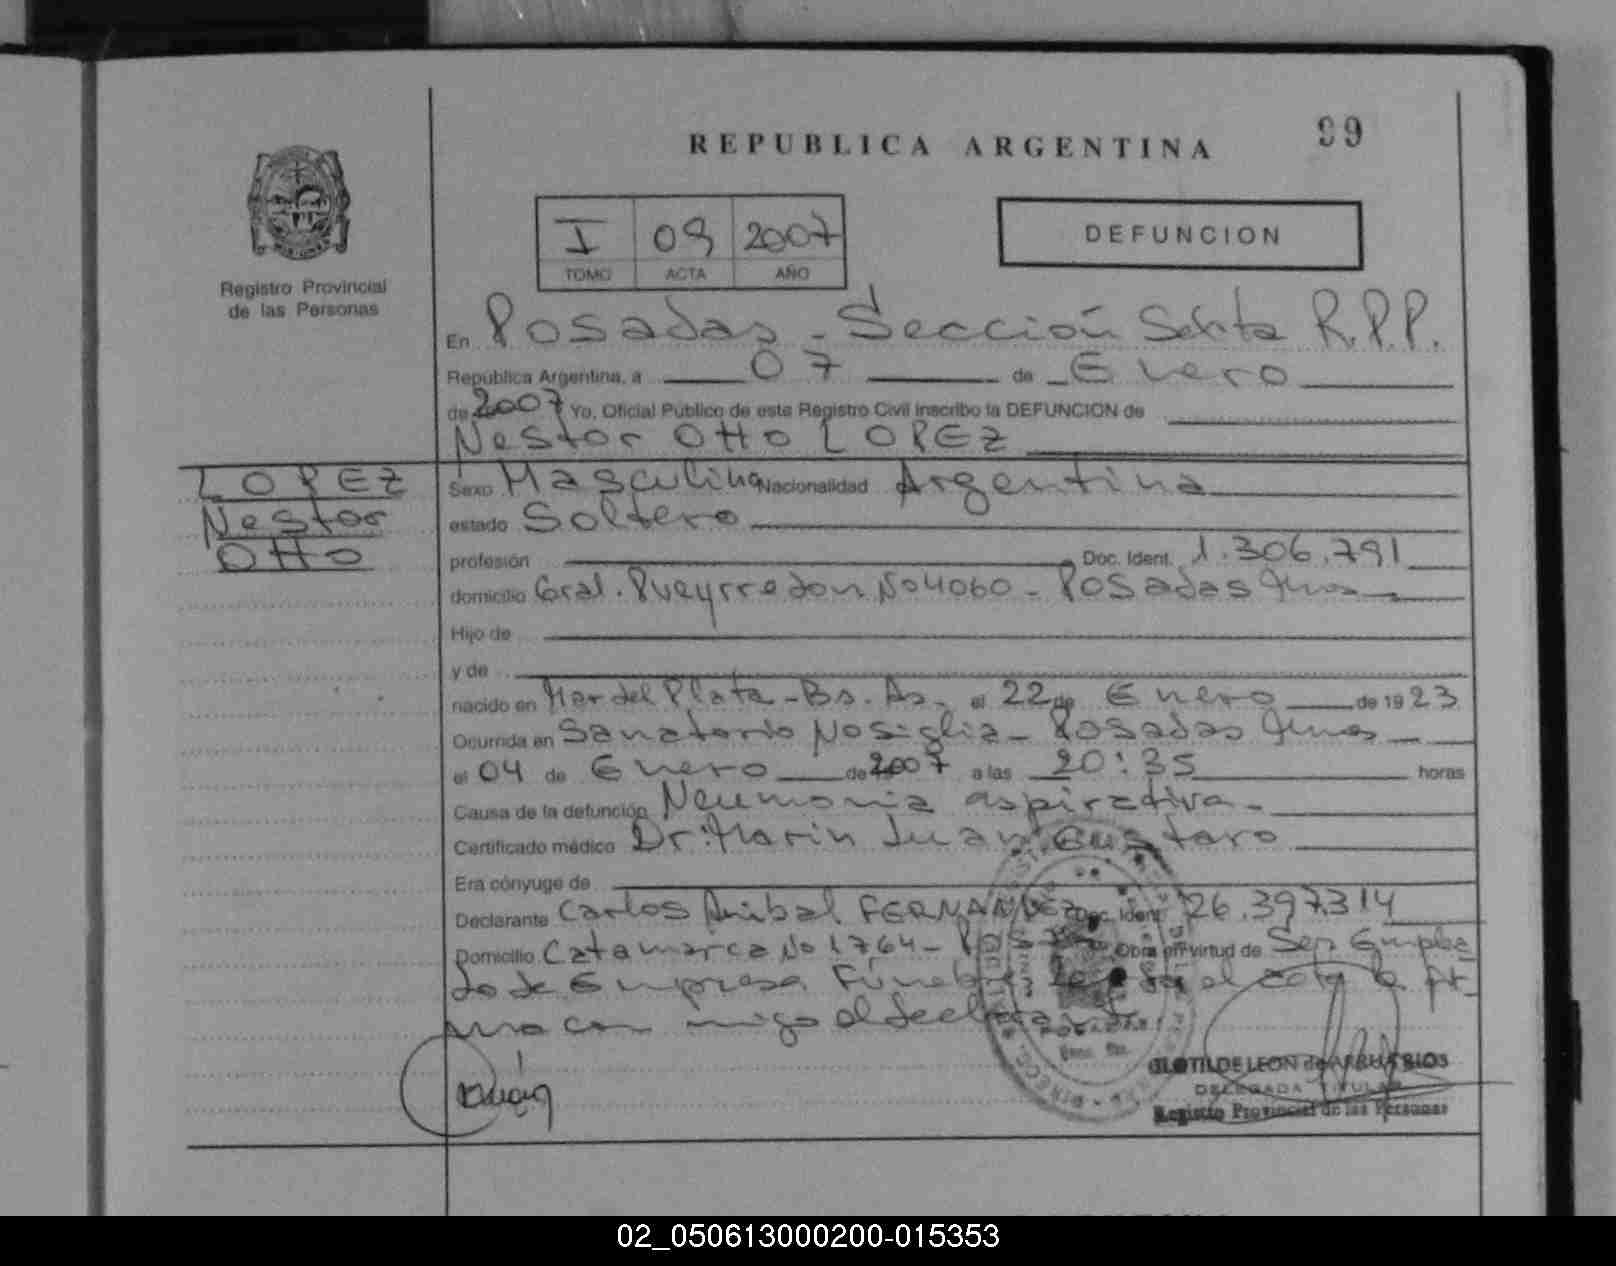 99
REPUBLICA ARGENTINA
I 09 2007
TOMO ACTA AÑO
DEFUNCION
Registro Provincial
de las Personas
En Posadas - Sección Sexta R.P.P.
República Argentina, a 07 de Enero
de 2007 Yo, Oficial Público de este Registro Civil inscribo la DEFUNCION de
Nestor Otto LOPEZ
LOPEZ
Nestor
Otto
Sexo Masculino Nacionalidad Argentina
estado Soltero
profesión Doc. Ident. 1.306.791
domicilio Gral. Pueyrredon No 4060 - Posadas Mnes
Hijo de
y de
nacido en Mar del Plata - Bs. As. el 22 de Enero de 1923
Ocurrida en Sanatorio Nosiglia - Posadas Mnes
el 04 de Enero de 2007 a las 20:35 horas
Causa de la defunción Neumonia aspirativa -
Certificado médico Dr. Marin Juan Gustavo
Era cónyuge de
Declarante Carlos Anibal FERNANDEZ Doc. Ident. 26.397.314
Domicilio Catamarca No 1764 - Obra en virtud de Ser Emplea
do de Empresa Fúnebre
el declarante
CLOTILDE LEON de ARBUES RIOS
DELEGADA TITULAR
Registro Provincial de las Personas
02_050613000200-015353